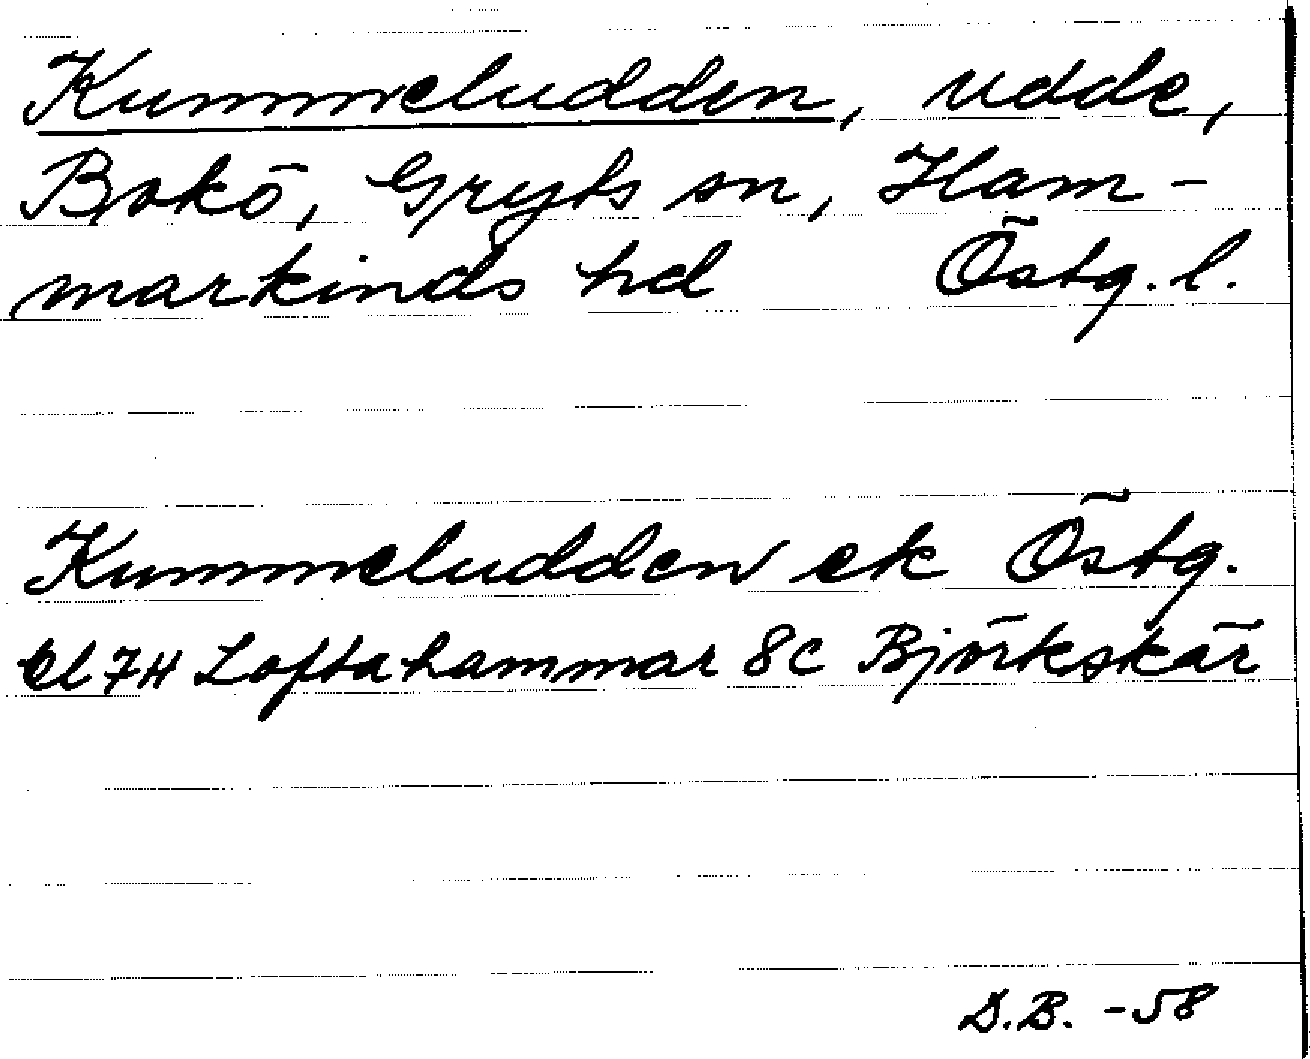 Kummeludden, udde,
Bokö, Gryts sn, Ham-
markinds hd Östg. l.
Kummeludden ek Östg.
bl 7H Loftahammar 8c Björkskär
D.B. -58